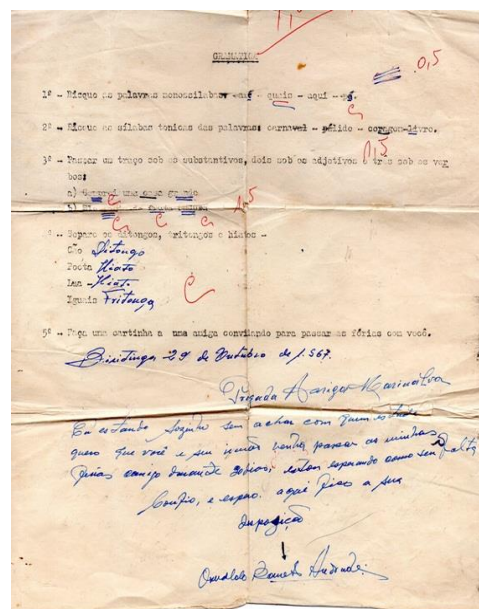 GRAMATICA
0,5
1º - Risque as palavras monossilabas: - quais - aqui - pé.
2º - Risque as sílabas tonicas das palavras: carnaval - pálido - coragem-livro.
3º - Passar um traço sob os substantivos, dois sob os adjetivos e tres sob os ver
bos:
a) Comprei uma casa grande
b)
- Separe os ditongos, tritongos e hiatos -
Cão Ditongo
Poeta Hiato
Lua - Hiato
Iguais Tritongo
5º - Faça uma cartinha a uma amiga convidando para passar as férias com você.
29 de Outubro de 1.967.
Prezada Amiga Marinalva
Eu estando sozinho sem achar com quem
quero que você e seu irmão venha passar as minhas
férias comigo durante esperando como sem falta
Confio, e espero. aqui fico a sua
disposição
Oswaldo Andrade